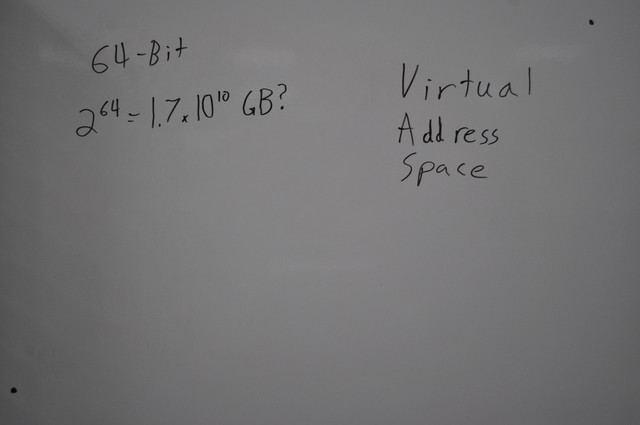 64-Bit
2⁶⁴ = 1.7 × 10¹⁰ GB?
Virtual
Address
Space